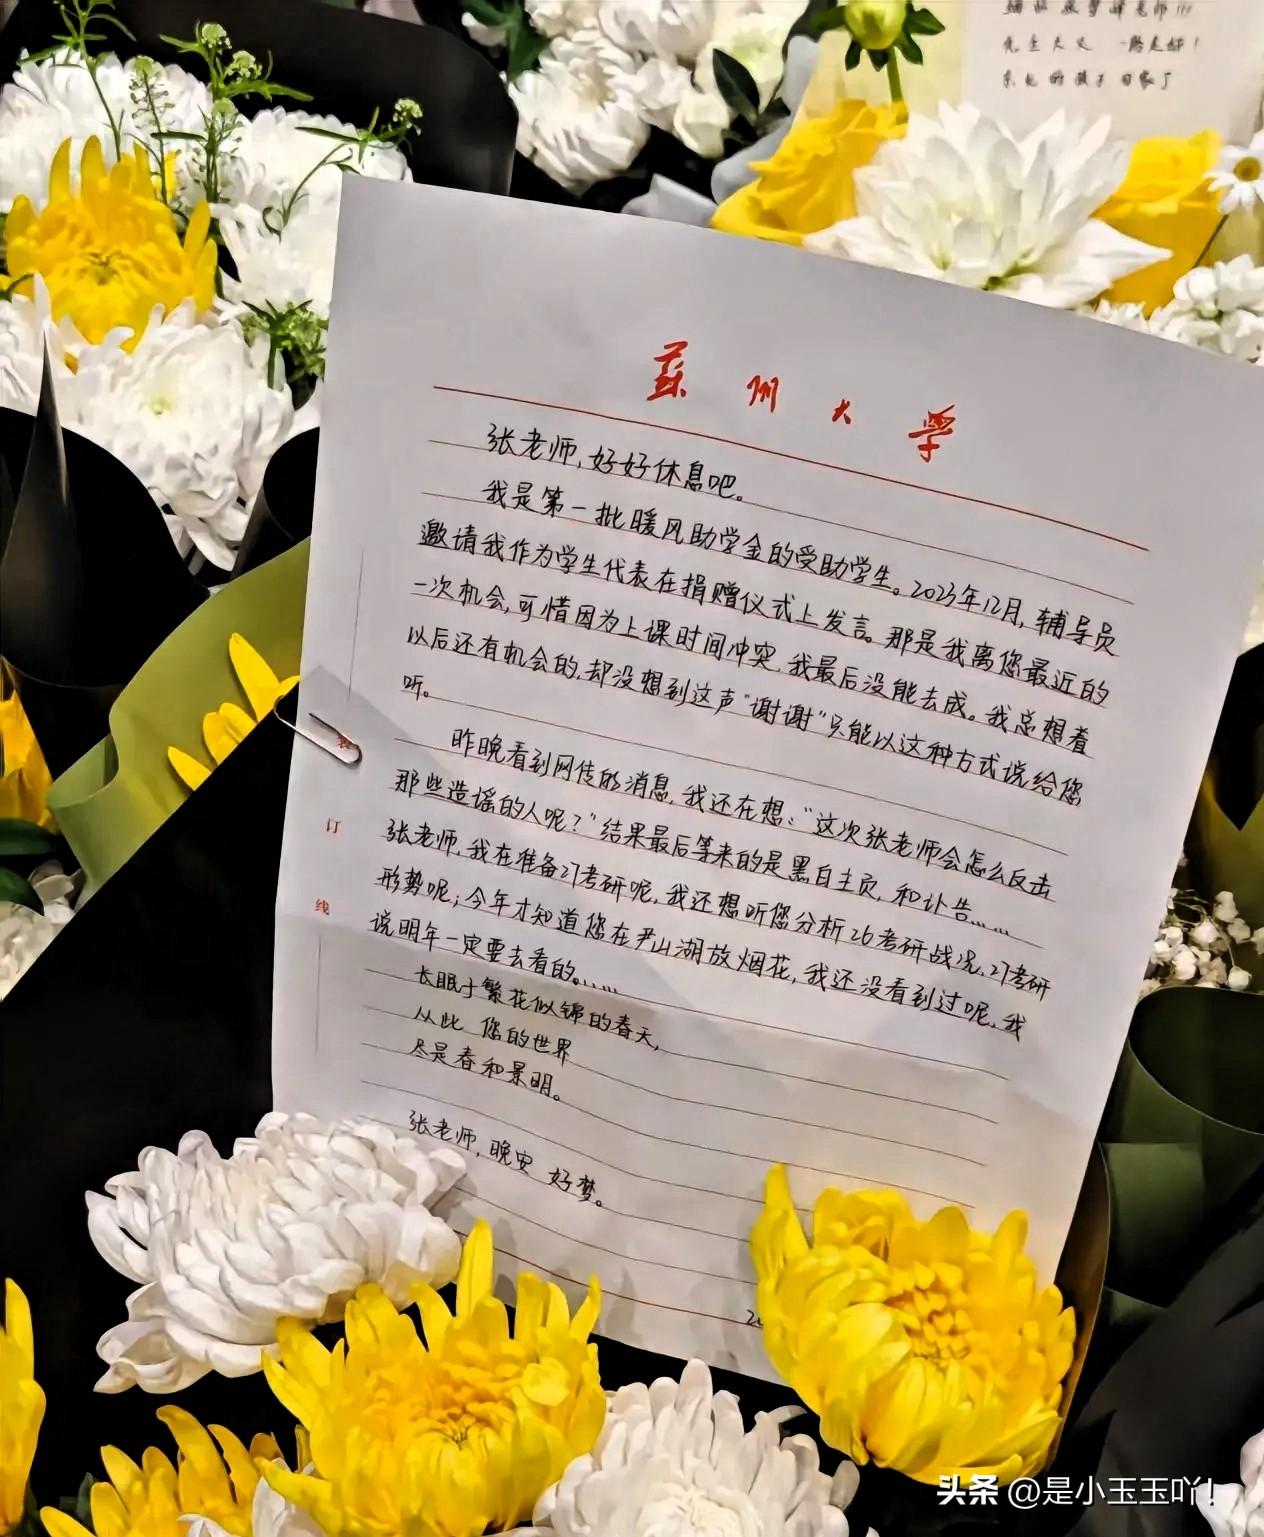 缅怀张雪峰老师!!!
先生大义 一路走好!
东北的孩子回家了
蘇州大学
张老师,好好休息吧。
我是第一批暖风助学金的受助学生。2023年12月,辅导员
邀请我作为学生代表在捐赠仪式上发言。那是我离您最近的
一次机会,可惜因为上课时间冲突,我最后没能去成。我总想着
以后还有机会的,却没想到这声“谢谢”只能以这种方式说给您
听。
昨晚看到网传的消息,我还在想:“这次张老师会怎么反击
那些造谣的人呢?”结果最后等来的是黑白主页,和讣告……
张老师,我在准备27考研呢,我还想听您分析26考研战况、27考研
形势呢;今年才知道您在尹山湖放烟花,我还没看到过呢,我
说明年一定要去看的……
长眠于繁花似锦的春天,
从此 您的世界
尽是春和景明。
张老师,晚安 好梦。
装
订
线
头条 @是小玉玉吖!